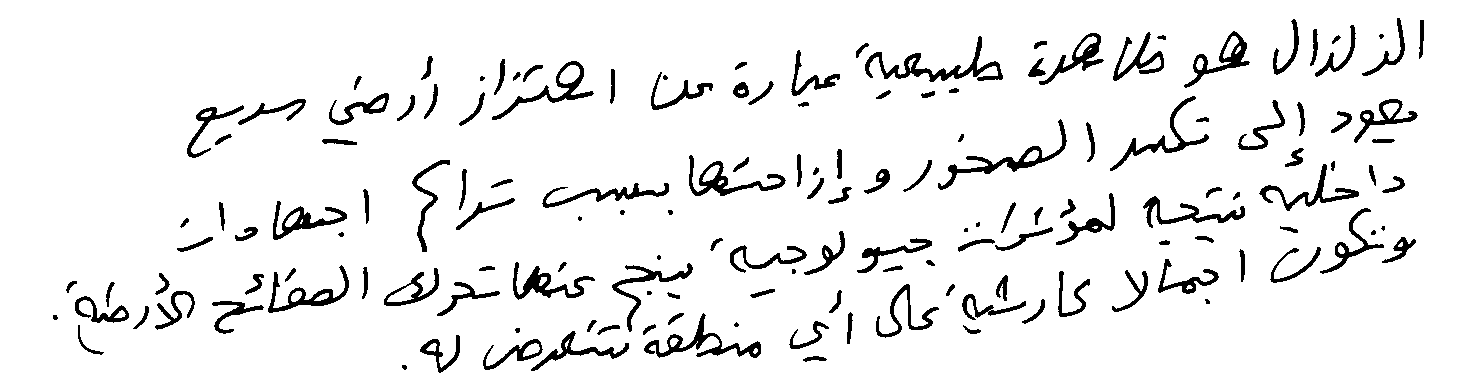 الزلزال هو ظاهرة طبيعية عبارة عن اهتزاز أرضي سريع
يعود إلى تكسر الصخور وإزاحتها بسبب تراكم اجهادات
داخلية نتيجة لمؤثرات جيولوجية ينجم عنها تحرك الصفائح الأرضية.
وتكون اجمالا كارثية على أي منطقة تتعرض له.